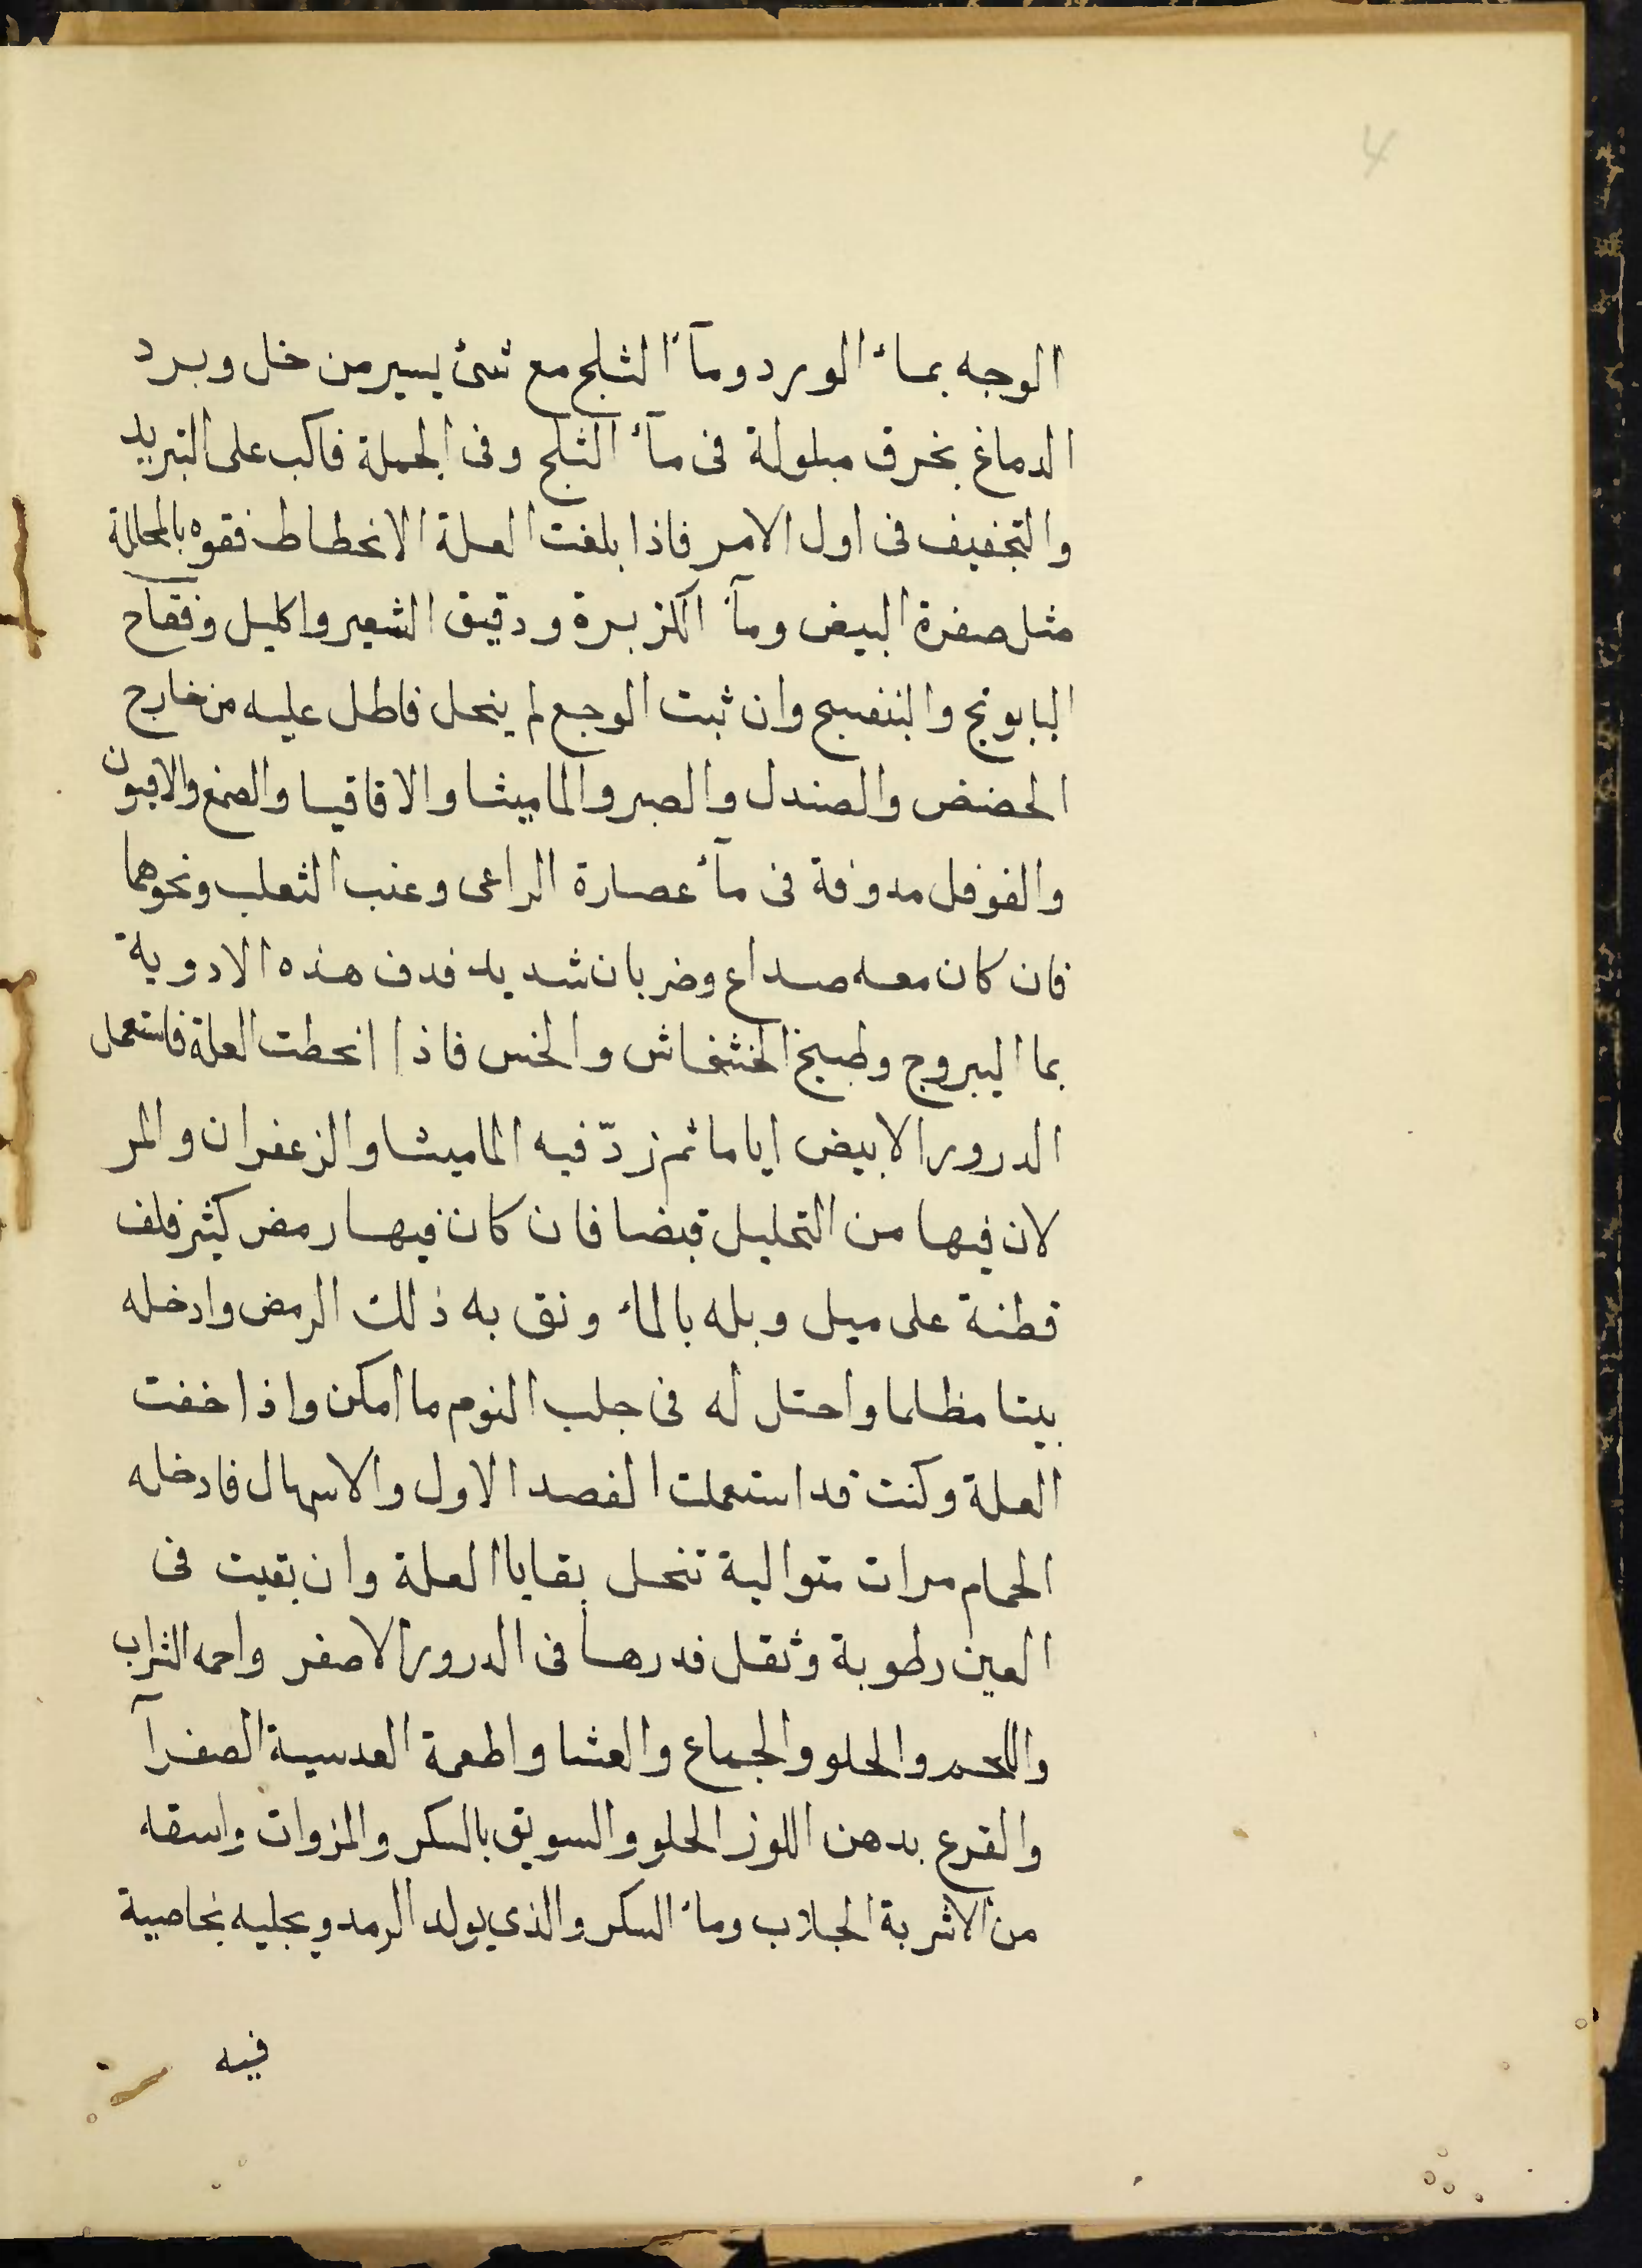 4
الوجه بماء الورد وماء الثلج مع شئ يسير من خل وبرد
الدماغ بخرق مبلولة فى مآء الثلج وفى الجملة فاكب على التبريد
والتجفيف فى اول الامر فاذا بلغت العلة الانحطاط فقوه بالمحللة
مثل صفرة البيض ومآء الكزبرة ودقيق الشعير واكليل وفقاح
البابونج والبنفسج وان ثبت الوجع لم ينحل فاطل عليه من خارج
الحضض والصندل والصبر والماميثا والاقاقيا والصمغ والافيون
والفوفل مدوفة فى مآء عصارة الراعى وعنب الثعلب ونحوهما
فان كان معه صداع وضربان شديد فدف هذه الادوية
بما اليبروج وطبيخ الخشخاش والخس فاذا انحطت العلة فاستعمل
الدرور الابيض اياما ثم زدّ فيه الماميثا والزعفران والمر
لان فيها من التحليل قبضا فان كان فيها رمض كثير فلف
قطنة على ميل وبله بالماء ونق به ذلك الرمض وادخله
بيتا مظلما واحتل له فى جلب النوم ما امكن واذا خفت
العلة وكنت قد استعملت الفصد الاول والاسهال فادخله
الحمام مرات متوالية تنحل بقايا العلة وان بقيت فى
العين رطوبة وثقل فدرها فى الدرور الاصفر واحمه الشراب
واللحم والحلو والجماع والعشا واطعمة العدسية الصفرآ
والقرع بدهن اللوز الحلو والسويق بالسكر والمزوات واسقه
من الاشربة الجلاب وماء السكر والذي يولد الرمد ويجليه بخاصية
فيه